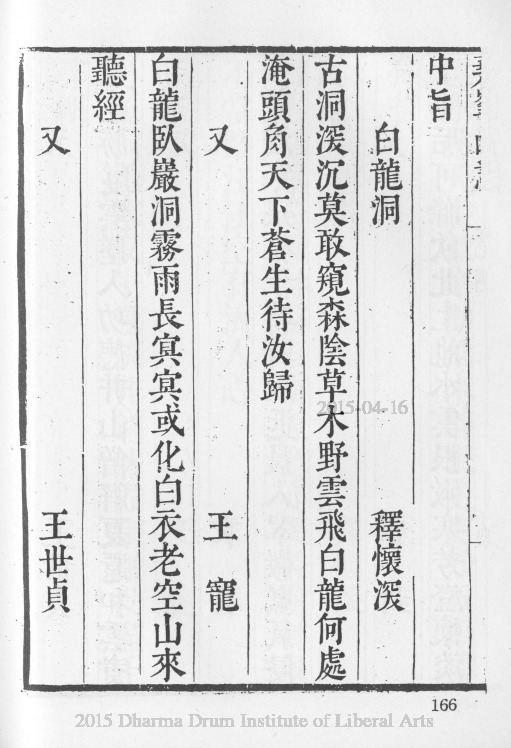 中旨
白龍洞 釋懷深
古洞深沉莫敢窺森陰草木野雲飛白龍何處
淹頭角天下蒼生待汝歸
又 王寵
白龍臥巖洞霧雨長寞寞或化白衣老空山來
聽經
又 王世貞
2015-04-16
166
2015 Dharma Drum Institute of Liberal Arts